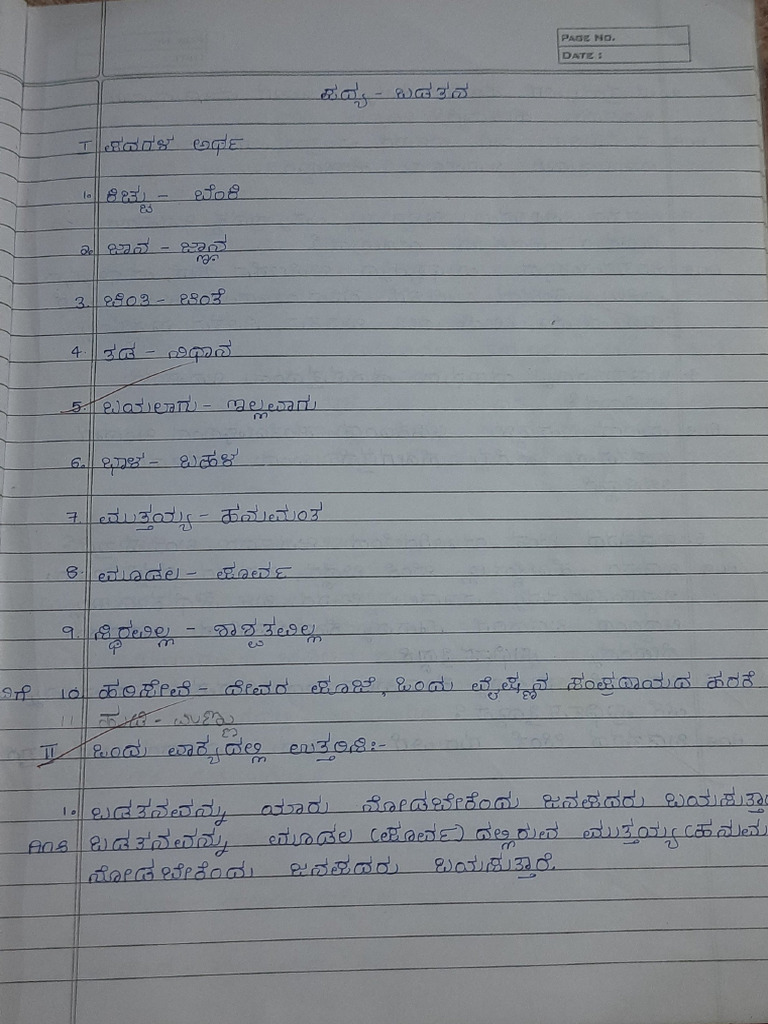 PAGE NO.
DATE :
ಪದ್ಯ - ಬಡತನ
I ಪದಗಳ ಅರ್ಥ
1. ಕಿಚ್ಚು - ಬೆಂಕಿ
2. ಜಾನ - ಜ್ಞಾನ
3. ಚಿಂತಿ - ಚಿಂತೆ
4. ತಡ - ನಿಧಾನ
5. ಬಯಲಾಗು - ಇಲ್ಲವಾಗು
6. ಭಾಳ - ಬಹಳ
7. ಮುತ್ತಯ್ಯ - ಹನುಮಂತ
8. ಮೂಡಲ - ಪೂರ್ವ
9. ಸ್ಥಿರವಿಲ್ಲ - ಶಾಶ್ವತವಿಲ್ಲ
10. ಹರಿಸೇವೆ - ದೇವರ ಪೂಜೆ, ಒಂದು ವೈಷ್ಣವ ಸಂಪ್ರದಾಯದ ಹರಕೆ
11 ಹುಡಿ - ಮಣ್ಣು
II ಒಂದು ವಾಕ್ಯದಲ್ಲಿ ಉತ್ತರಿಸಿ:-
1. ಬಡತನವನ್ನು ಯಾರು ನೋಡಬೇಕೆಂದು ಜನಪದರು ಬಯಸುತ್ತಾ
Ans ಬಡತನವನ್ನು ಮೂಡಲ (ಪೂರ್ವ) ದಲ್ಲಿರುವ ಮುತ್ತಯ್ಯ (ಹನುಮ
ನೋಡಬೇಕೆಂದು ಜನಪದರು ಬಯಸುತ್ತಾರೆ.